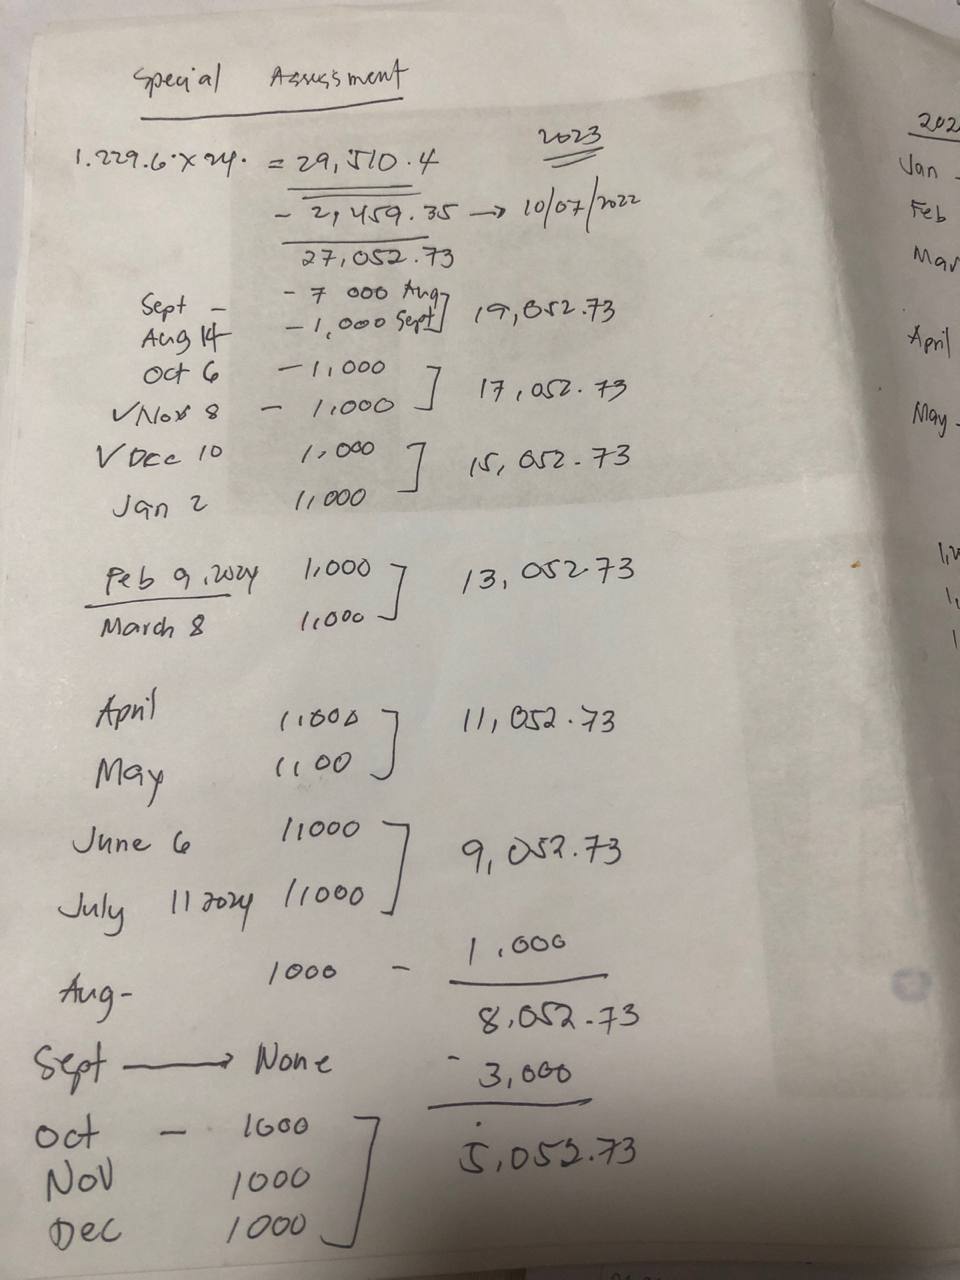 Special Assessment
1.229.6 x 24. = 29,510.4
2023
- 2,459.35 → 10/07/2022
27,052.73
Sept - - 7 000 Aug
Aug 14 - 1,000 Sept] 19,052.73
Oct 6 - 1,000
√Nov 8 - 1,000 ] 17,052.73
√Dec 10 1,000
Jan 2 1,000 ] 15,052.73
Feb 9, 2024 1,000
March 8 1,000 ] 13,052.73
April 1,000
May 1,00 ] 11,052.73
June 6 1,000
July 11 2024 1,000 ] 9,052.73
Aug- 1000 - 1,000
8,052.73
Sept → None - 3,000
Oct - 1000
Nov 1000
Dec 1000 ] 5,052.73
202
Jan -
Feb
Mar
April
May -